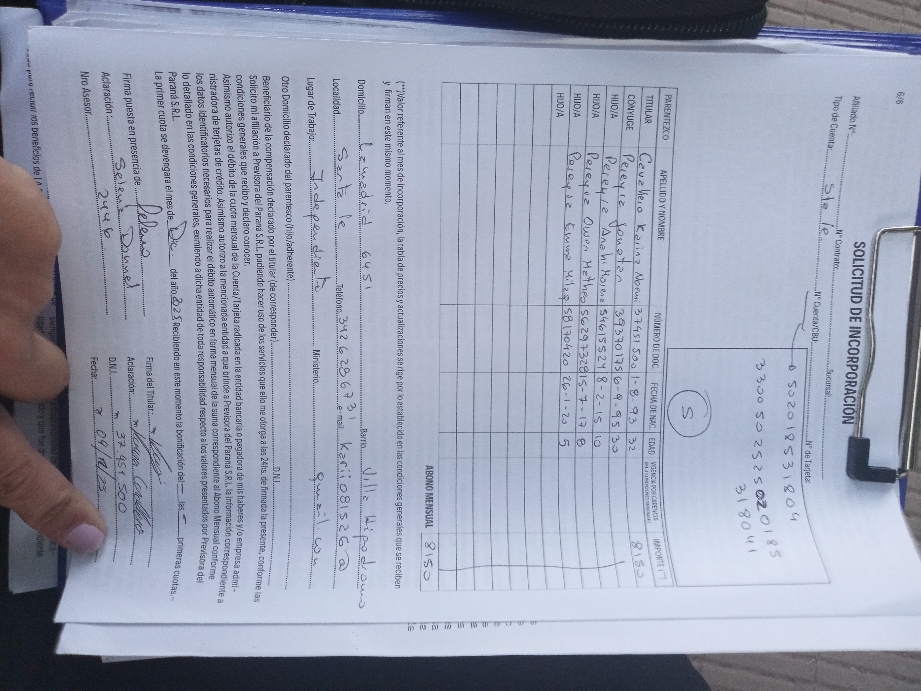 6/8
SOLICITUD DE INCORPORACIÓN
Afiliado Nº Nº Contrato Sucursal:
Tipo de Cuenta: Sta Fe Nº Cuenta/CBU: Nº de Tarjeta:
6502018531804
3300502525020185
318041
S
PARENTEZCO APELLIDO Y NOMBRE NÚMERO DE DOC. FECHA DE NAC. EDAD IMPORTE (*)
TITULAR Karina Noemi 37451500 1-8-93 32 8150
CONYUGE Pereyra Jonatan 39370175 6-9-95 30
HIJO/A Pereyra Anahi Morena 54615524 8-2-15 10
HIJO/A Pereyra Owen Matheo 56297328 15-7-17 8
HIJO/A Pereyra Emma 58170420 26-1-20 5
ABONO MENSUAL 8150
(**) Valor referente al mes de incorporación, la tabla de precios y actualizaciones se rige por lo establecido en las condiciones generales que se reciben
y firman en este mismo momento.
Domicilio Lamadrid 6451 Barrio Villa Hipodromo
Localidad Santa fe Teléfono 3426286731 e-mail Karii081526@
Lugar de Trabajo: Independiente Ministerio gmail.com
Otro Domicilio declarado del parentesco (hijo/adherente)
Beneficiario de la compensación declarado por el titular (de corresponder) D.N.I.
Solicito mi afiliación a Previsora del Paraná S.R.L. pudiendo hacer uso de los servicios que ello me otorga a las 24hs. de firmada la presente, conforme las
condiciones generales que recibo y declaro conocer.
Asimismo autorizo el débito de la cuota mensual de la Cuenta/Tarjeta radicada en la entidad bancaria o pagadora de mis haberes y/o empresa admi-
nistradora de tarjetas de crédito. Asimismo autorizo a la mencionada entidad a que brinde a Previsora del Paraná S.R.L. la información correspondiente a
los datos identificatorios necesarios para realizar el débito automático en forma mensual de la suma correspondiente al Abono Mensual conforme
lo detallado en las condiciones generales, eximiendo a dicha entidad de toda responsabilidad respecto a los valores presentados por Previsora del
Paraná S.R.L.
La primer cuota se devengara el mes de Dic del año 2025 Recibiendo en este momento la bonificación del — las — primeras cuotas.-
Firma puesta en presencia de Selena Firma del Titular:
Aclaración: Selena Aclaración: Karina
Nro Asesor: 2446 D.N.I. 37.451.500
Fecha: